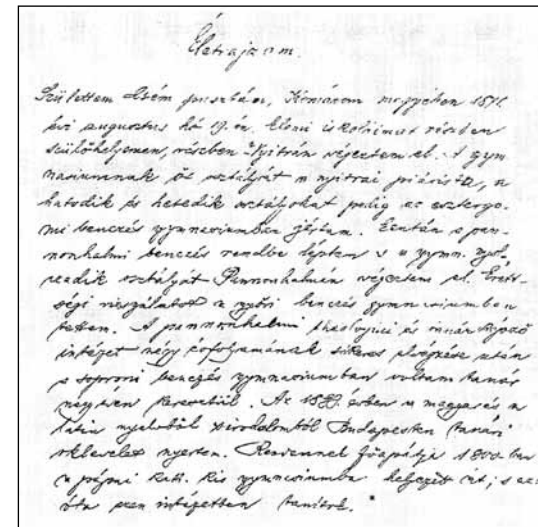 Életrajzom.
Születtem Csém pusztán, Komárom megyében 187
évi augusztus hó 19-én. Elemi iskoláimat részben
szülőhelyemen, részben Nyitrán végeztem el. A gym
nasiumnak öt osztályát a nyitrai piarista, a
hatodik és hetedik osztályokat pedig az esztergo-
mi benczés gymnasiumban jártam. Ezután a pan-
nonhalmi benczés rendbe léptem s a gymn. nyol-
czadik osztályát Pannonhalmán végeztem el. Érett-
ségi vizsgálatot a győri benczés gymnasiumban
tettem. A pannonhalmi theologiai és tanárképző
intézet négy évfolyamának sikeres elvégzése után
a soproni benczés gymnasiumban voltam tanár
keresztül. Az évben a magyar és a
latin nyelvből s irodalomból Budapesten tanári
oklevelet nyertem. Rendemnek főapátja ban
a pápai kath. kis gymnasiumba helyezett át; s az
óta ezen intézetben tanítok.